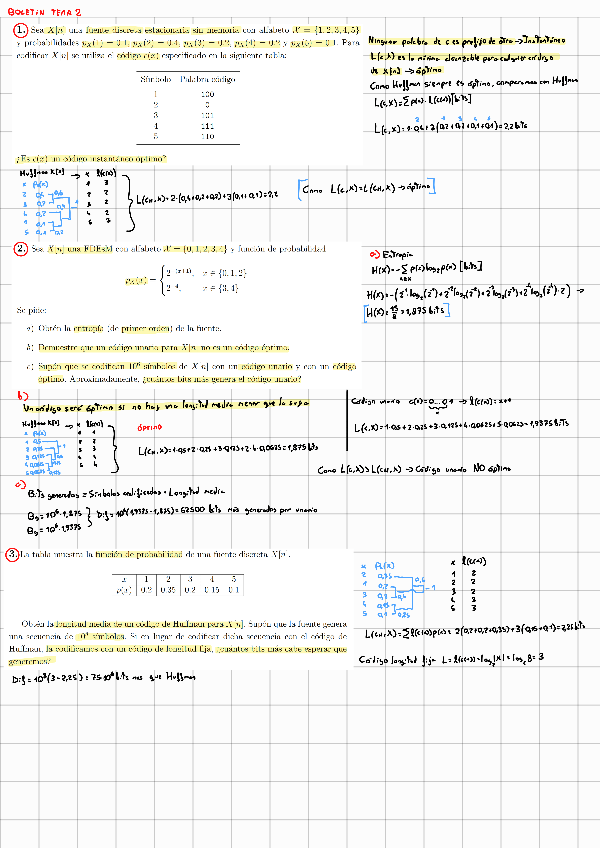 BOLETIN TEMA 2
1. Sea X[n] una fuente discreta estacionaria sin memoria con alfabeto X = {1, 2, 3, 4, 5}
y probabilidades pX(1) = 0.1, pX(2) = 0.4, pX(3) = 0.2, pX(4) = 0.2 y pX(5) = 0.1. Para
codificar X[n] se utiliza el código c(x) especificado en la siguiente tabla:
Símbolo Palabra código
1 100
2 0
3 101
4 111
5 110
¿Es c(x) un código instantáneo óptimo?
Ninguna palabra de c es prefijo de otra → Instantáneo
L(c,X) es la mínima alcanzable para cualquier código
de X[n] → óptimo
Como Huffman siempre es óptimo, comparamos con Huffman
L(c,X) = Σ p(x)· l(c(x)) [bits]
L(c,X) = 1·0,4+3(0,2+0,2+0,1+0,1) = 2,2 bits
Huffman X[n] → x l(c(x))
x Pr(x)
L(cH,X) = 2·(0,4+0,2+0,2)+3(0,1+0,1) = 2,2
Como L(c,X) = L(cH,X) → óptimo
2. Sea X[n] una FDEsM con alfabeto X = {0, 1, 2, 3, 4} y función de probabilidad
pX(x) = { 2^-(x+1), x ∈ {0, 1, 2}
2^-4, x ∈ {3, 4}
Se pide:
a) Obtén la entropía (de primer orden) de la fuente.
b) Demuestre que un código unario para X[n] no es un código óptimo.
c) Supón que se codifican 10⁶ símbolos de X[n] con un código unario y con un código
óptimo. Aproximadamente, ¿cuántos bits más genera el código unario?
a) Entropía
H(X) = -Σ p(x) log₂ p(x) [bits]
H(X) = -(2⁻¹ log₂(2⁻¹)+2⁻² log₂(2⁻²)+2⁻³ log₂(2⁻³)+2⁻⁴ log₂(2⁻⁴)·2) →
H(X) = 15/8 = 1,875 bits
b)
Un código será óptimo si no hay una longitud media menor que la suya
Huffman X[n] → x l(c(x))
x Pr(x)
ÓPTIMO
L(cH,X) = 1·0,5+2·0,25+3·0,125+2·4·0,0625 = 1,875 bits
Código unario c(x) = 0...01 → l(c(x)) = x+1
L(c,X) = 1·0,5+2·0,25+3·0,125+4·0,0625+5·0,0625 = 1,9375 bits
Como L(c,X) > L(cH,X) → Código unario NO óptimo
c)
Bits generados = Símbolos codificados · Longitud media
10⁶·1,875
10⁶·1,9375
Dif = 10⁶(1,9375-1,875) = 62500 bits más generados por unario
3. La tabla muestra la función de probabilidad de una fuente discreta X[n].
x 1 2 3 4 5
p(x) 0.2 0.35 0.2 0.15 0.1
Obtén la longitud media de un código de Huffman para X[n]. Supón que la fuente genera
una secuencia de 10⁸ símbolos. Si en lugar de codificar dicha secuencia con el código de
Huffman, la codificamos con un código de longitud fija, ¿cuántos bits más cabe esperar que
generemos?
x Pr(x)
x l(c(x))
1 2
2 2
3 2
4 3
5 3
L(cH,X) = Σ l(c(x)) p(x) = 2(0,2+0,2+0,35)+3(0,15+0,1) = 2,25 bits
Código longitud fija L = l(c(x)) = log₂|X| = log₂ 8 = 3
Dif = 10⁸(3-2,25) = 75·10⁶ bits más que Huffman